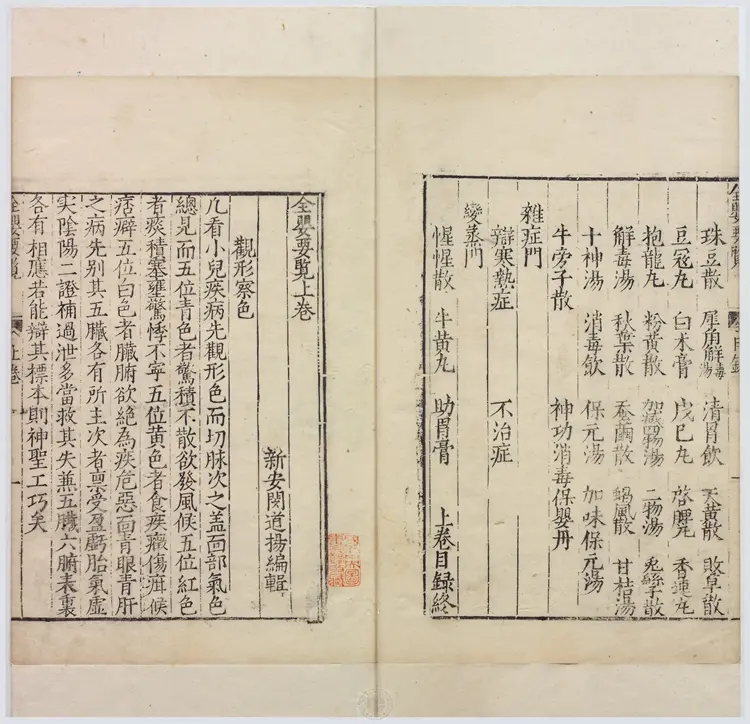 全嬰要覽
珠豆散 犀角解毒湯 清胃飲 天黃散 敗草散
豆寇丸 白术膏 戊己丸 啓脾丸 香連丸
抱龍丸 粉黃散 二物湯 兎絲子散
解毒湯 秋葉散 蚕繭散 蝎風散 甘桔湯
十神湯 消毒飲 保元湯 加味保元湯
牛旁子散 神功消毒保嬰丹
雜症門
辯寒𤍠症 不治症
變蒸門
惺惺散 牛黃丸 助胃膏 上卷目録終
全嬰要覧上卷
新安閔道揚編輯
觀形察色
凢看小兒疾病先觀形色而切脉次之盖面部氣色
總見而五位青色者驚積不散欲發風候五位紅色
者痰積塞壅驚悸不寜五位黄色者食疾癥傷疳候
痞癖五位白色者臟腑欲絶為疾危惡面青眼青肝
之病先别其五臟各有所主次者禀受盈虧胎氣虚
実陰陽二證補過泄多當救其失兼五臟六腑表裏
各有相應若能辯其標本則神聖工巧矣
全嬰要覧 上卷 一